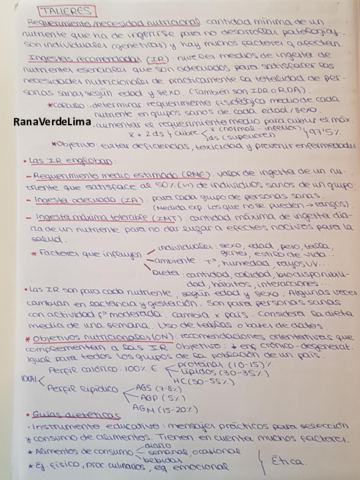 TALLERES
Requerimiento/necesidad nutricional cantidad mínima de un
nutriente que ha de ingerirse para no desarrollar patologías
son individuales (genéticas) y hay muchos factores q afectan
Ingestas recomendadas (IR) niveles medios de ingesta de
nutrientes esenciales que son adecuados, para satisfacer las
necesidades nutricionales de prácticamente la totalidad de per-
sonas sanas según edad y sexo. (También son IDR o RDA).
* Cálculo: determinar requerimiento fisiológico medio de cada
nutriente en grupos sanos de cada edad/sexo
RanaVerdeLima
aumentar es requerimiento medio para cubrir es máx
97'5%
* Objetivo: evitar deficiencias, toxicidad y prevenir enfermedades
• Las IR engloban
- Requerimiento medio estimado: valor de ingesta de un nu-
triente que satisface al 50% de individuos sanos de un grupo
- Ingesta adecuada (IA) para cada grupo de personas sanas
- Ingesta máxima tolerable cantidad máxima de ingesta dia-
ria de un nutriente para no dar lugar a efectos nocivos para la
salud.
* Factores que influyen individuales: sexo, edad, peso, talla,
genes, estilo de vida...
ambiente: Tª, humedad, rayos UV...
Dieta: cantidad, calidad, biodisponibili-
dad, hábitos, interacciones
• Las IR son para cada nutriente, según edad y sexo. Algunas veces
cambian en lactancia y gestación. Son para personas sanas
con actividad fª moderada. Cambia x país. Considera la dieta
media de una semana. Uso de tablas o bases de datos
* Objetivos nutricionales (ON): recomendaciones orientativas que
complementan a las IR. Objetivo: ↓ enf crónico-degenerat.
Igual para todos los grupos de la población de un país.
Perfil calórico: 100% E
proteínas (10-15)%
lípidos (30-35%)
HC (50-55%)
100%
Perfil lipídico
AGS (7-8%)
AGP (5%)
AGM (15-20%)
• Guías dietéticas
· Instrumento educativo: mensajes prácticos para selección
y consumo de alimentos. Tienen en cuenta muchos factores.
* Alimentos de consumo
diario
semanal, ocasional
bebidas
* Ej físico, proc culinarios, eq emocional
Ética.